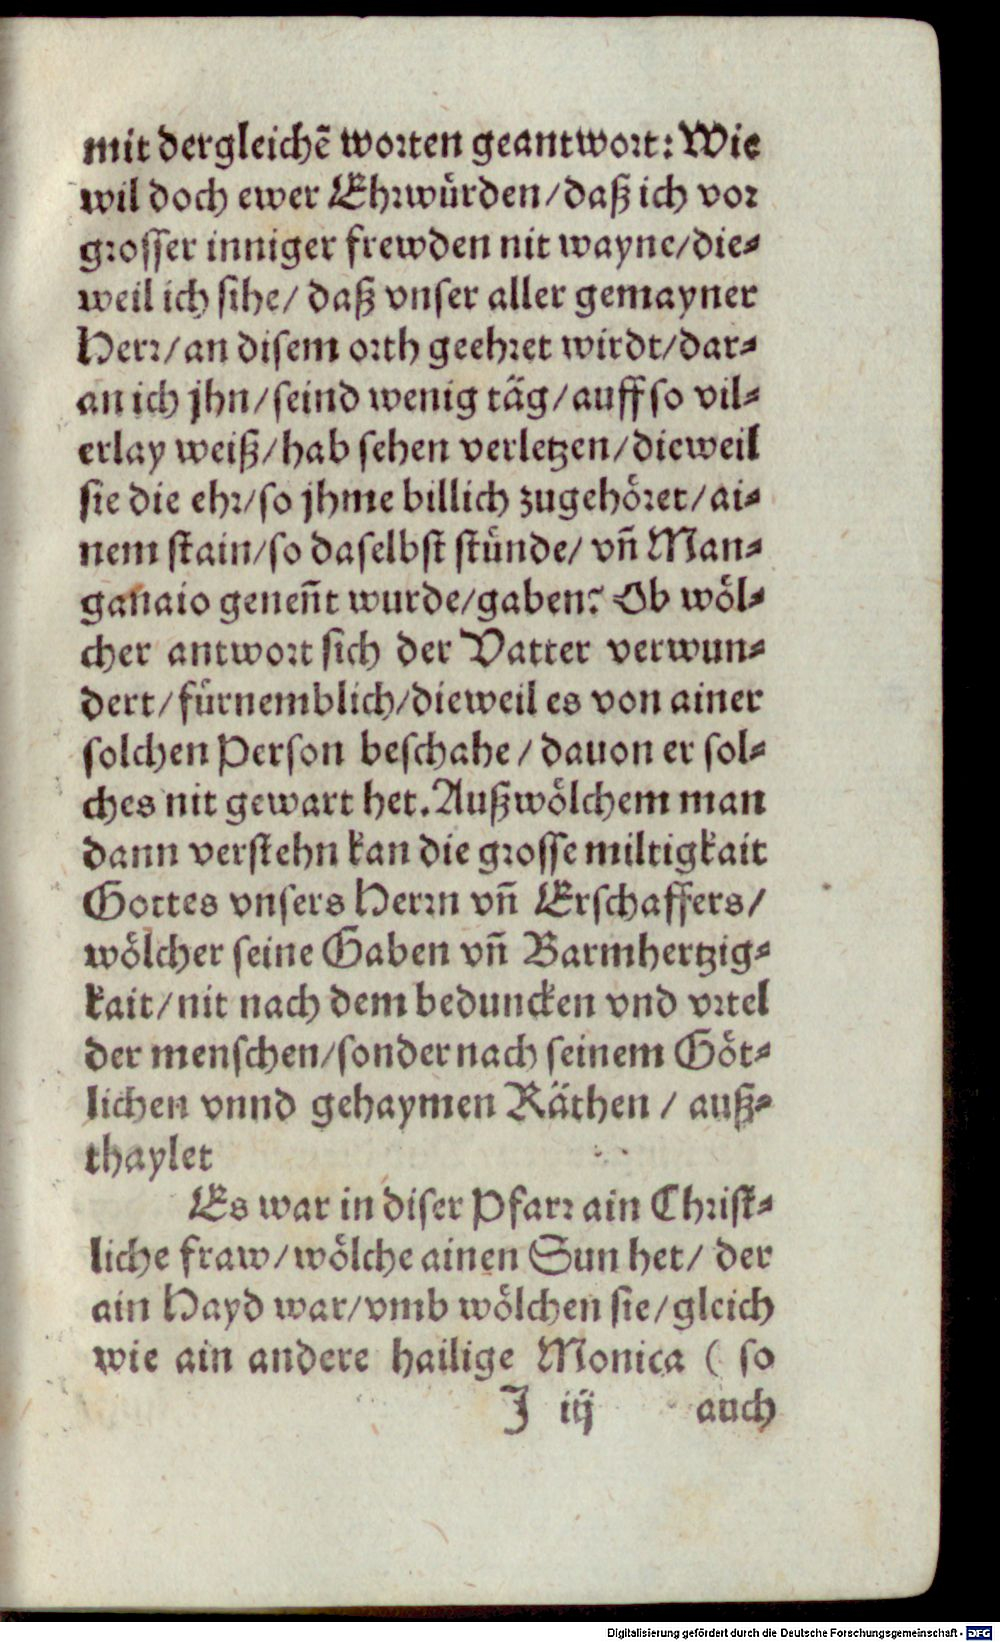 mit dergleichẽ worten geantwort: Wie
wil doch ewer Ehrwürden/daß ich vor
grosser inniger frewden nit wayne/die-
weil ich sihe/ daß vnser aller gemayner
Herr/an disem orth geehret wirdt/dar-
an ich jhn/seind wenig täg/auff so vil-
erlay weiß/hab sehen verletzen/dieweil
sie die ehr/so jhme billich zugehöret/ai-
nem stain/so daselbst stünde/ vñ Man-
ganaio geneñt wurde/gaben? Ob wöl-
cher antwort sich der Vatter verwun-
dert/fürnemblich/dieweil es von ainer
solchen Person beschahe/dauon er sol-
ches nit gewart het. Außwölchem man
dann verstehn kan die grosse miltigkait
Gottes vnsers Herrn vñ Erschaffers/
wölcher seine Gaben vñ Barmhertzig-
kait/nit nach dem beduncken vnd vrtel
der menschen/sonder nach seinem Göt-
lichen vnnd gehaymen Räthen / auß-
thaylet
Es war in diser Pfarr ain Christ-
liche fraw/wölche ainen Sun het/ der
ain Hayd war/vmb wölchen sie/gleich
wie ain andere hailige Monica ( so
J iij auch
Digitalisierung gefördert durch die Deutsche Forschungsgemeinschaft - DFG